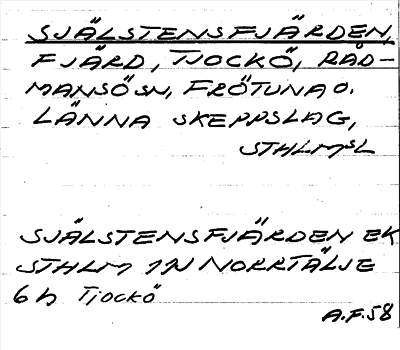 SJÄLSTENSFJÄRDEN,
FJÄRD, TJOCKÖ, RÅD-
MANSÖ SN, FRÖTUNA O.
LÄNNA SKEPPSLAG,
STHLMSL
SJÄLSTENSFJÄRDEN EK
STHLM 11N NORRTÄLJE
6h Tjockö
A.F.58